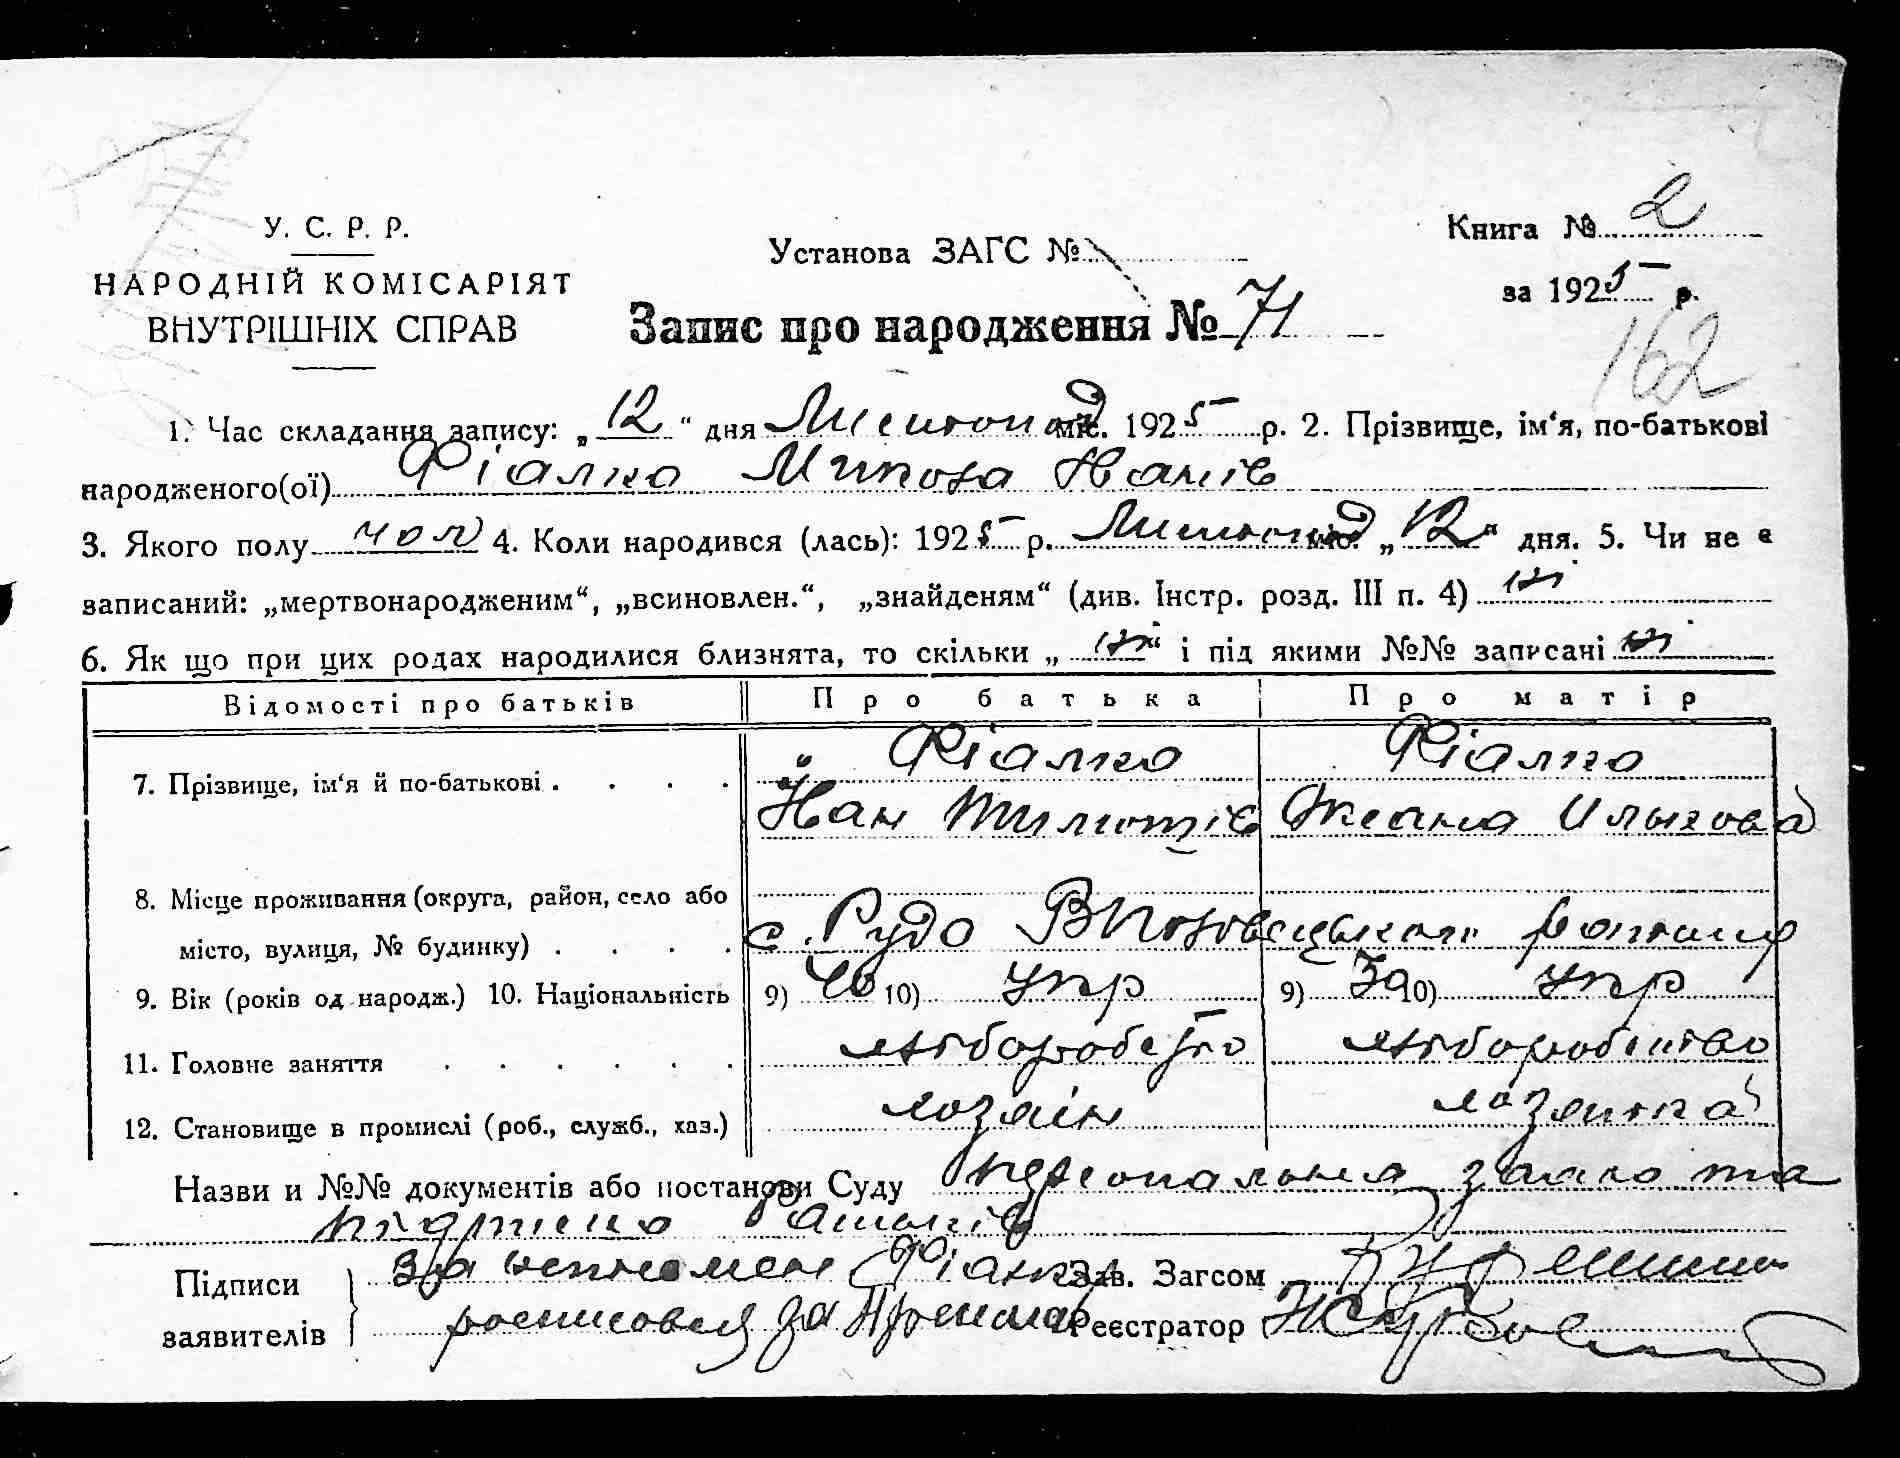 Книга № 2
У. С. Р. Р.
Установа ЗАГС №
НАРОДНІЙ КОМІСАРІЯТ
за 1925 р.
ВНУТРІШНІХ СПРАВ
Запис про народження № 71
162
1. Час складання запису: „12“ дня Листопад міс. 1925 р. 2. Прізвище, ім‘я, по-батькові
народженого(ої) Фіалко Микола Іванів
3. Якого полу чол 4. Коли народився (лась): 1925 р. Листопад міс. „12“ дня. 5. Чи не є
записаний: „мертвонародженим“, „всиновлен.“, „знайденям“ (див. Інстр. розд. III п. 4) ні
6. Як що при цих родах народилися близнята, то скільки „ні“ і під якими №№ записані ні
Відомості про батьків Про батька Про матір
Фіалко Фіалко
7. Прізвище, ім‘я й по-батькові . . . .
Йван Оксана
8. Місце проживання (округа, район, село або
місто, вулиця, № будинку) . . . . с. Рудо району
9. Вік (років од народж.) 10. Національність 9) 40 10) укр 9) 39 10) укр
11. Головне заняття . . . . . . хліборобство хліборобство
12. Становище в промислі (роб., служб., хаз.) хозяін хозяйка
Назви и №№ документів або постанови Суду персональна заява та
Підписи За Фіалка Зав. Загсом
заявителів росписовся за Реєстратор